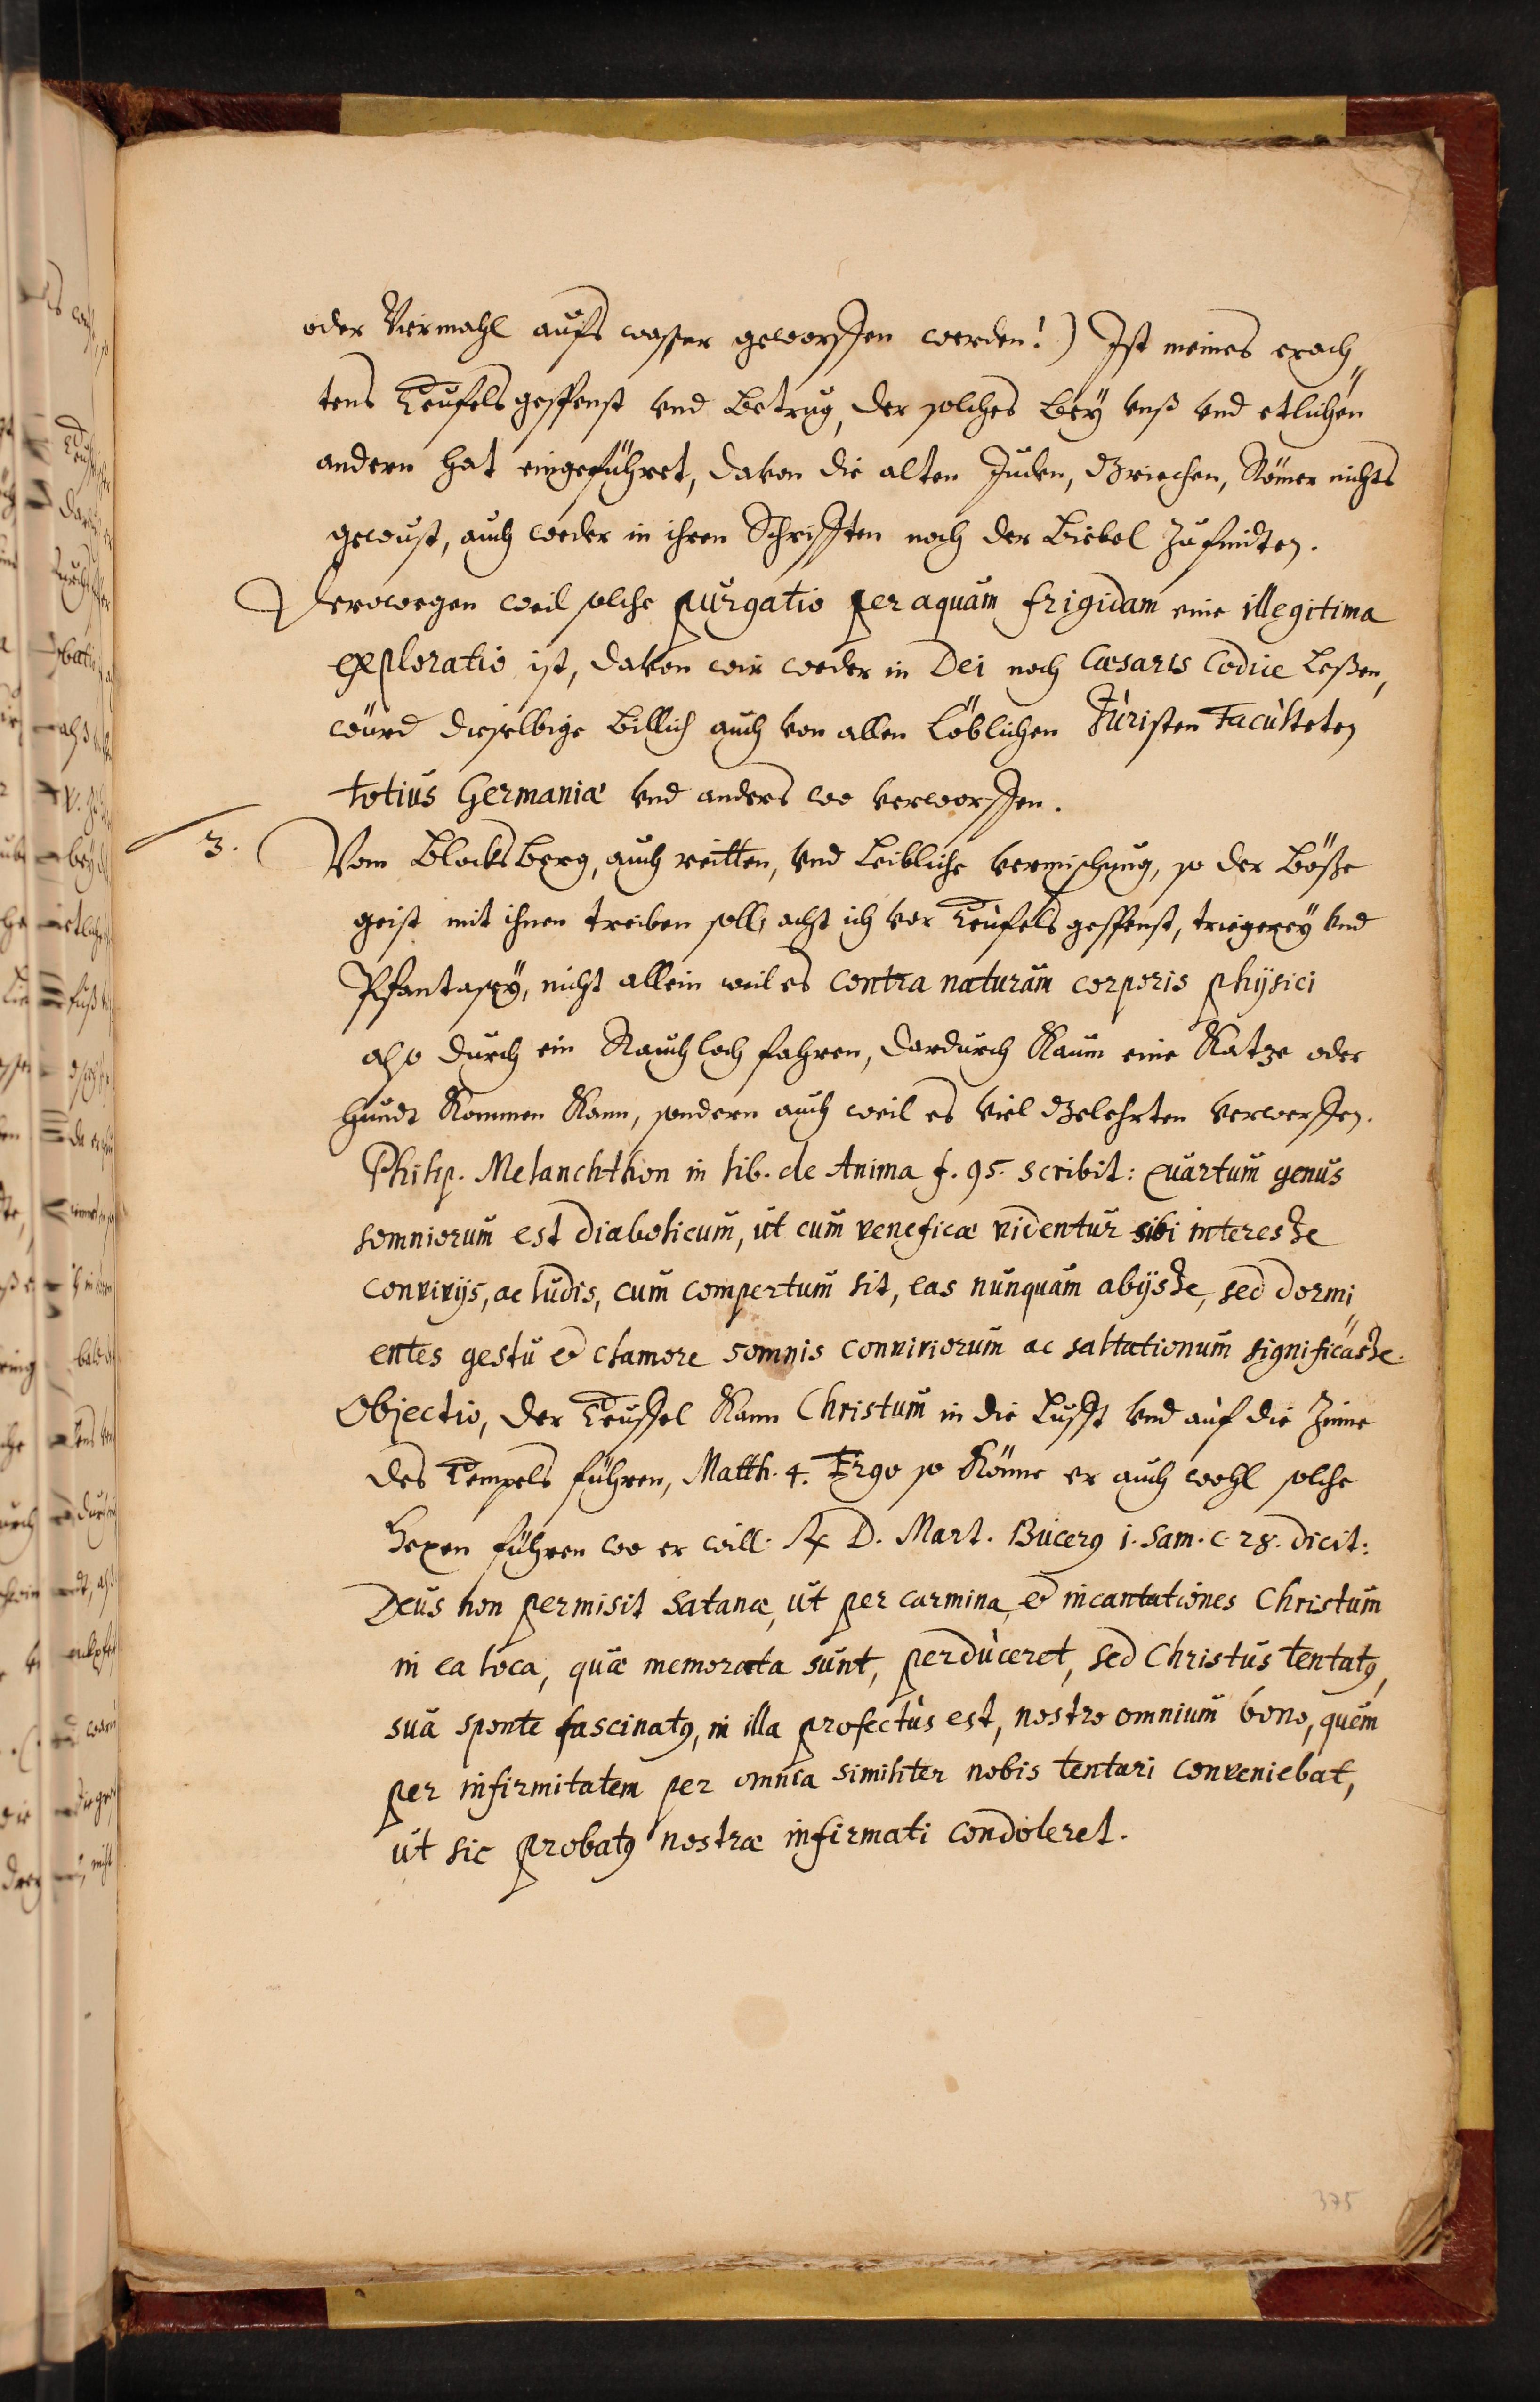 oder Viermahl aufs waßer geworffen werden!) Ist meines erach„
tens Teufels gespenst vnd Betrug, der solches bey vnß vnd etlichen
andern hat eingeführet, davon die alten Juden, Griechen, Römer nichts
gewust, auch weder in ihren Schrifften noch der Biebel zufindten.
Derowegen weil solche purgatio per aquam frigidam eine illegitima
exploratio ist, davon wir weder in Dei noch Cæsaris Codice leßen,
würd dieselbige billich auch von allen Löblichen Juristen Faculteten
totius Germaniæ vnd anders wo verworffen.
3. Vom Blocksberg, auch reitten, vnd Leibliche vermischung, so der Böße
geist mit ihnen treiben soll, acht ich vor Teufels gespenst, triegerey vnd
Phantasey, nicht allein weil es contra naturam corporis physici
also durch ein Rauchloch fahren, dardurch kaum eine Katze oder
hundt kommen kann, sondern auch weil es viel Gelehrten verwerffen.
Philip. Melanchthon in lib. de Anima f. 95. scribit: Quartum genus
somniorum est diabolicum, ut cum veneficæ videntur sibi interesse
convivijs, ac ludis, cum compertum sit, eas nunquam abijsse, sed dormi„
entes gestu & clamore somnis conviviorum ac saltationum significasse.
Objectio, der Teuffel kann Christum in die Lufft vnd auf die Zinne
des Tempels führen, Matth. 4. Ergo so könne er auch wohl solche
Hexen führen wo er will. Rx D. Mart. Bucerꝰ 1. Sam. c. 28. dicit:
Deus non permisit Satanæ, ut per carmina & incantationes Christum
in ea loca, quæ memorata sunt, perduceret, sed Christus tentatꝰ,
sua sponte fascinatꝰ, in illa profectus est, nostro omnium bono, quem
per infirmitatem per omnia similiter nobis tentari conveniebat,
ut sic probatꝰ nostræ infirmati condoleret.
375